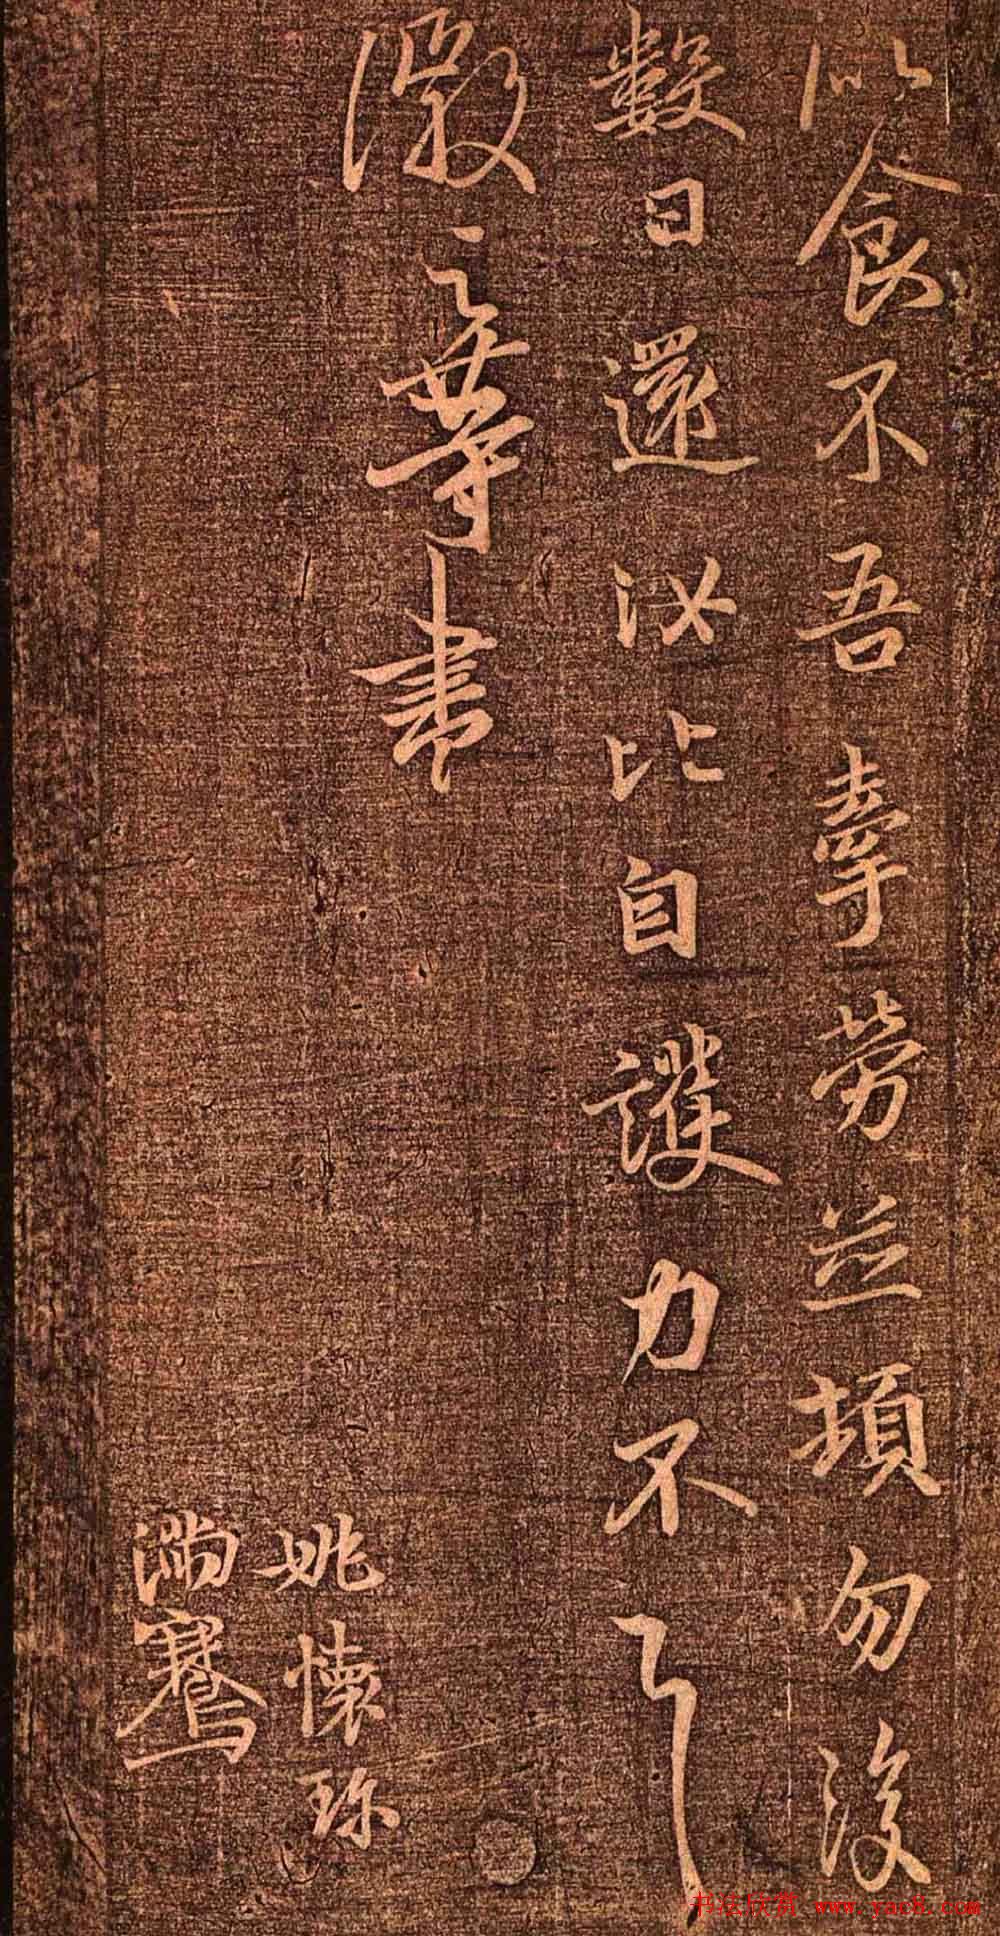 似食不吾牽勞並頓勿復
數日還汝比自護力不一一
徽之等書
姚懷珍
滿騫
书法欣赏 www.yac8.com